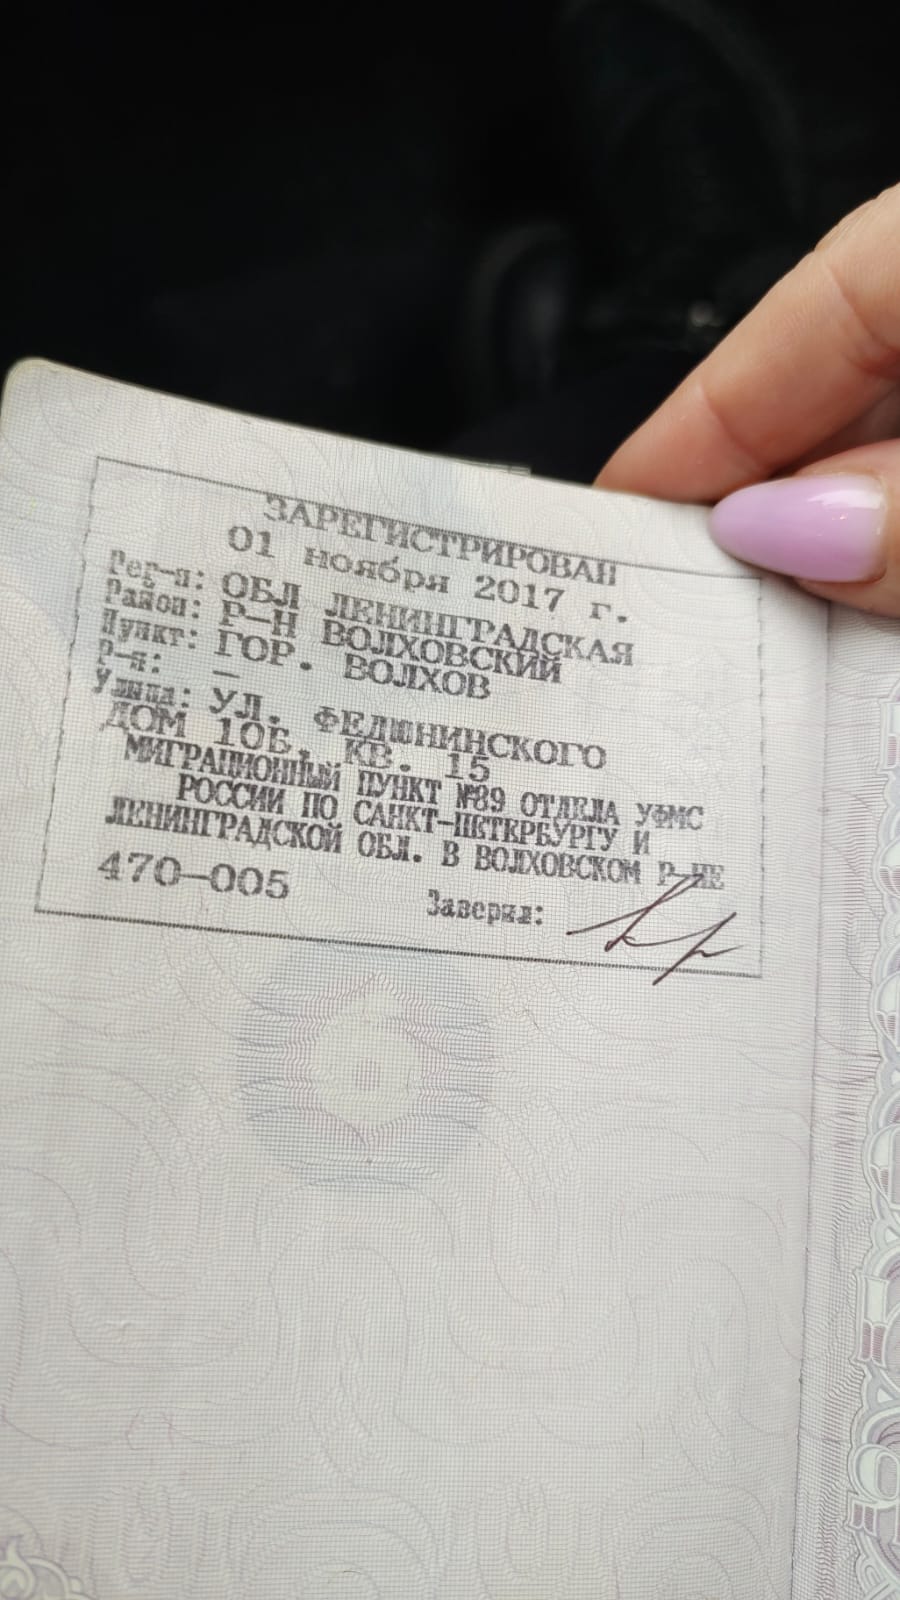 ЗАРЕГИСТРИРОВАН
01 ноября 2017 г.
Рег-н: ОБЛ ЛЕНИНГРАДСКАЯ
Район: Р-Н ВОЛХОВСКИЙ
Пункт: ГОР. ВОЛХОВ
Р-н: –
Улица: УЛ. ФЕДЮНИНСКОГО
ДОМ 10Б, КВ. 15
МИГРАЦИОННЫЙ ПУНКТ №89 ОТДЕЛА УФМС
РОССИИ ПО САНКТ-ПЕТЕРБУРГУ И
ЛЕНИНГРАДСКОЙ ОБЛ. В ВОЛХОВСКОМ Р-НЕ
470-005
Заверил: